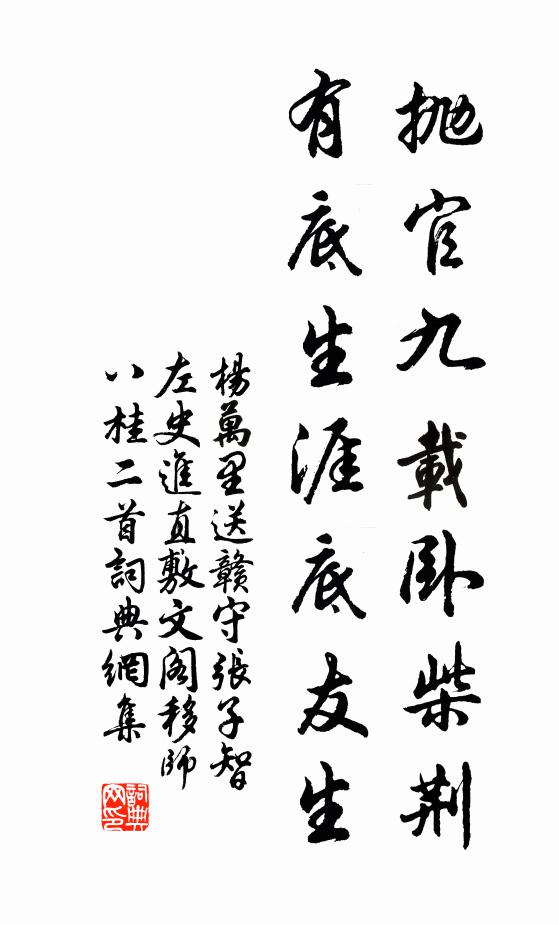 抛官九載卧柴荆
有底生涯底友生
楊萬里送贛守張子智
左史進直敷文閣移師
八桂二首詞典網集
詞典
网印